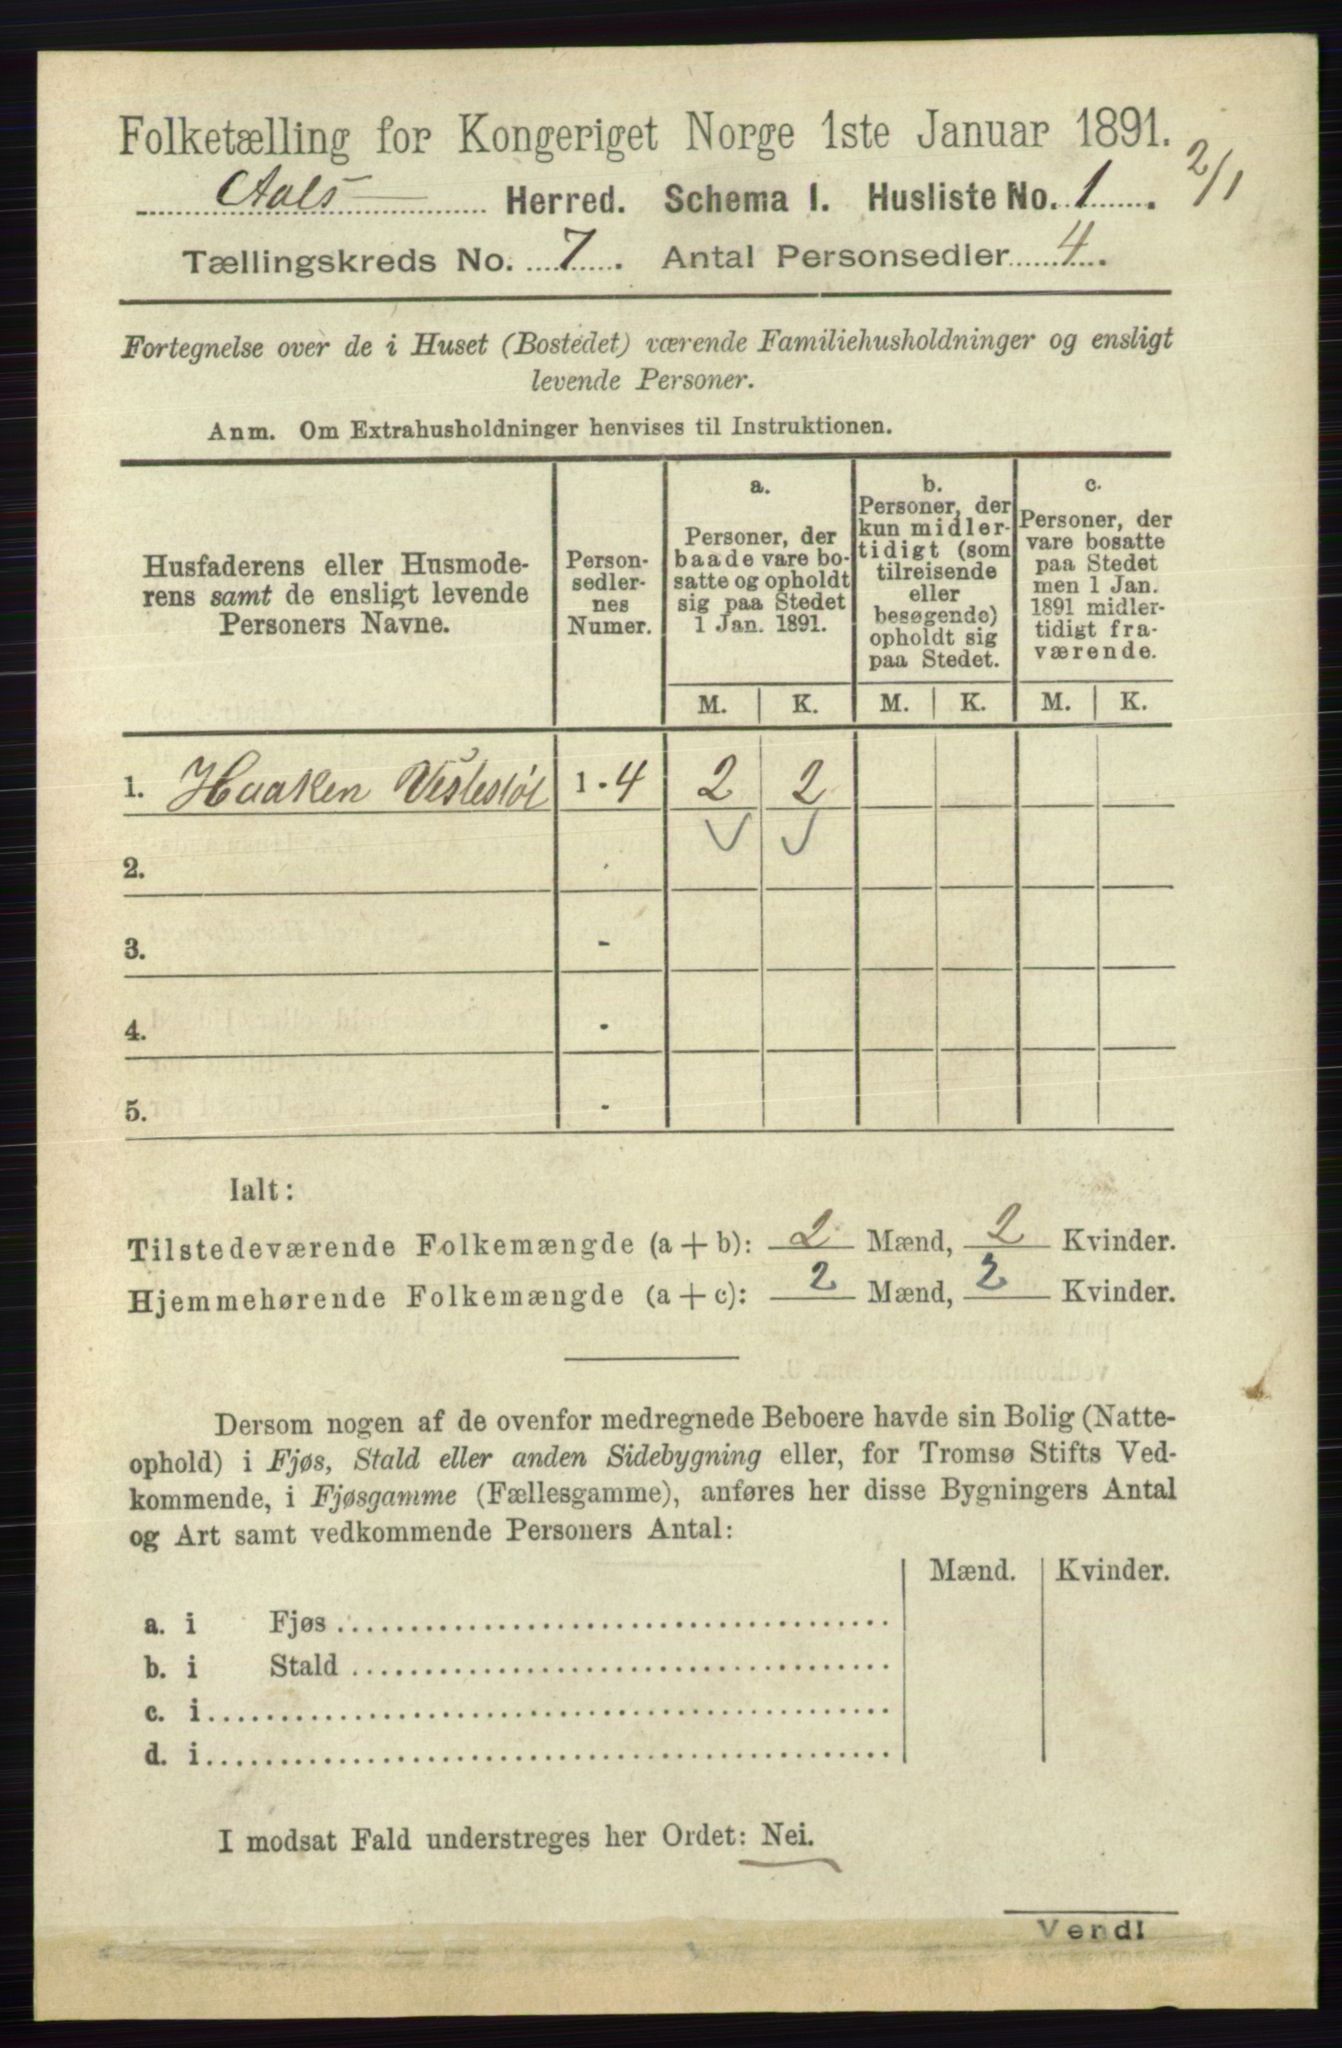 Folketælling for Kongeriget Norge 1ste Januar 1891.
Aals Herred. Schema I. Husliste No. 1. 2/1
Tællingskreds No. 7. Antal Personsedler 4.
Fortegnelse over de i Huset (Bostedet) værende Familiehusholdninger og ensligt
levende Personer.
Anm. Om Extrahusholdninger henvises til Instruktionen.
Husfaderens eller Husmode-
rens samt de ensligt levende
Personers Navne.
Person-
sedler-
nes
Numer.
a.
Personer, der
baade vare bo-
satte og opholdt
sig paa Stedet
1 Jan. 1891.
b.
Personer, der
kun midler-
tidigt (som
tilreisende
eller
besøgende)
opholdt sig
paa Stedet.
c.
Personer, der
vare bosatte
paa Stedet
men 1 Jan.
1891 midler-
tidigt fra-
værende.
M. K. M. K. M. K.
1. Haaken Veslestøl 1-4 2 2
2.
3. -
4. -
5. -
Ialt:
Tilstedeværende Folkemængde (a + b): 2 Mænd, 2 Kvinder.
Hjemmehørende Folkemængde (a + c): 2 Mænd, 2 Kvinder.
Dersom nogen af de ovenfor medregnede Beboere havde sin Bolig (Natte-
ophold) i Fjøs, Stald eller anden Sidebygning eller, for Tromsø Stifts Ved-
kommende, i Fjøsgamme (Fællesgamme), anføres her disse Bygningers Antal
og Art samt vedkommende Personers Antal:
Mænd. Kvinder.
a. i Fjøs
b. i Stald
c. i
d. i
I modsat Fald understreges her Ordet: Nei.
Vend!